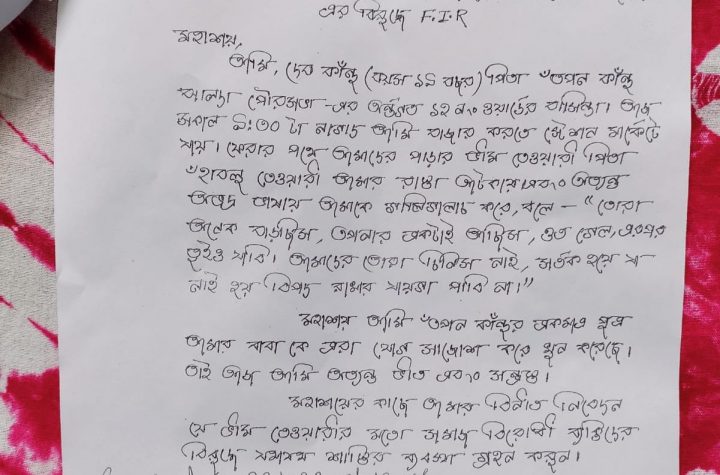 এর বিরুদ্ধে F.I.R
মহাশয়,
আমি, দেব কাঁন্দু (বয়স ১৯ বছর) পিতা ঁতপন কাঁন্দু
ঝালদা পৌরসভা-এর অর্ন্তগত ১২ নং ওয়ার্ডের বাসিন্দা। আজ
সকাল ৯:৩০ টা নাগাদ আমি বাজার করতে স্টেশন মার্কেটে
যায়। ফেরার পথে আমাদের পাড়ার ভীম তেওয়ারী পিতা
ঁহাবলু তেওয়ারী আমার রাস্তা আটকায় এবং অত্যন্ত
অভদ্র ভাষায় আমাকে গালিগালাচ করে, বলে – "তোরা
অনেক বাড়ছিস, তপনার একটাই আছিস, ওত গেল, এরপর
তুইও যাবি। আমাদের তোরা চিনিস নাই, সর্তক হয়ে যা
নাই হয় বিপদ রাখার যায়গা পাবি না।"
মহাশয় আমি ঁতপন কাঁন্দুর একমাত্র পুত্র
আমার বাবা কে এরা যোগ সাজোশ করে খুন করেছে।
তাই আজ আমি অত্যন্ত ভীত এবং সন্ত্রস্ত।
মহাশয়ের কাছে আমার বিনীত নিবেদন
যে ভীম তেওয়ারীর মতো সমাজ বিরোধী ব্যক্তিদের
বিরুদ্ধে যথাযথ শাস্তির ব্যবস্থা গ্রহন করুন।